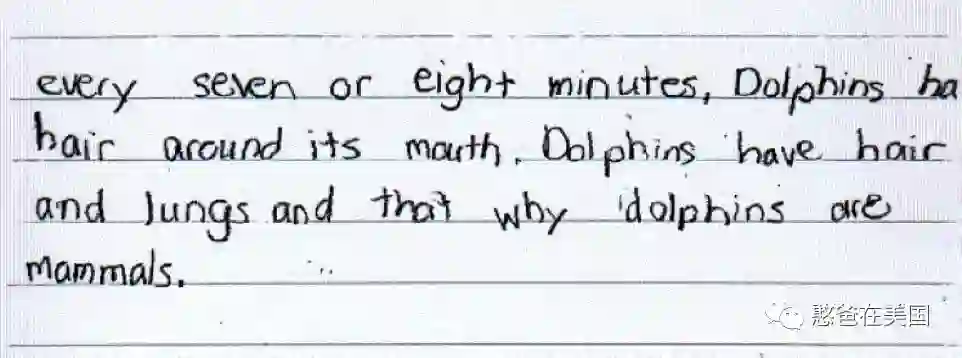 every seven or eight minutes, Dolphins ha
hair around its mouth. Dolphins have hair
and lungs and that why dolphins are
mammals.
憨爸在美国